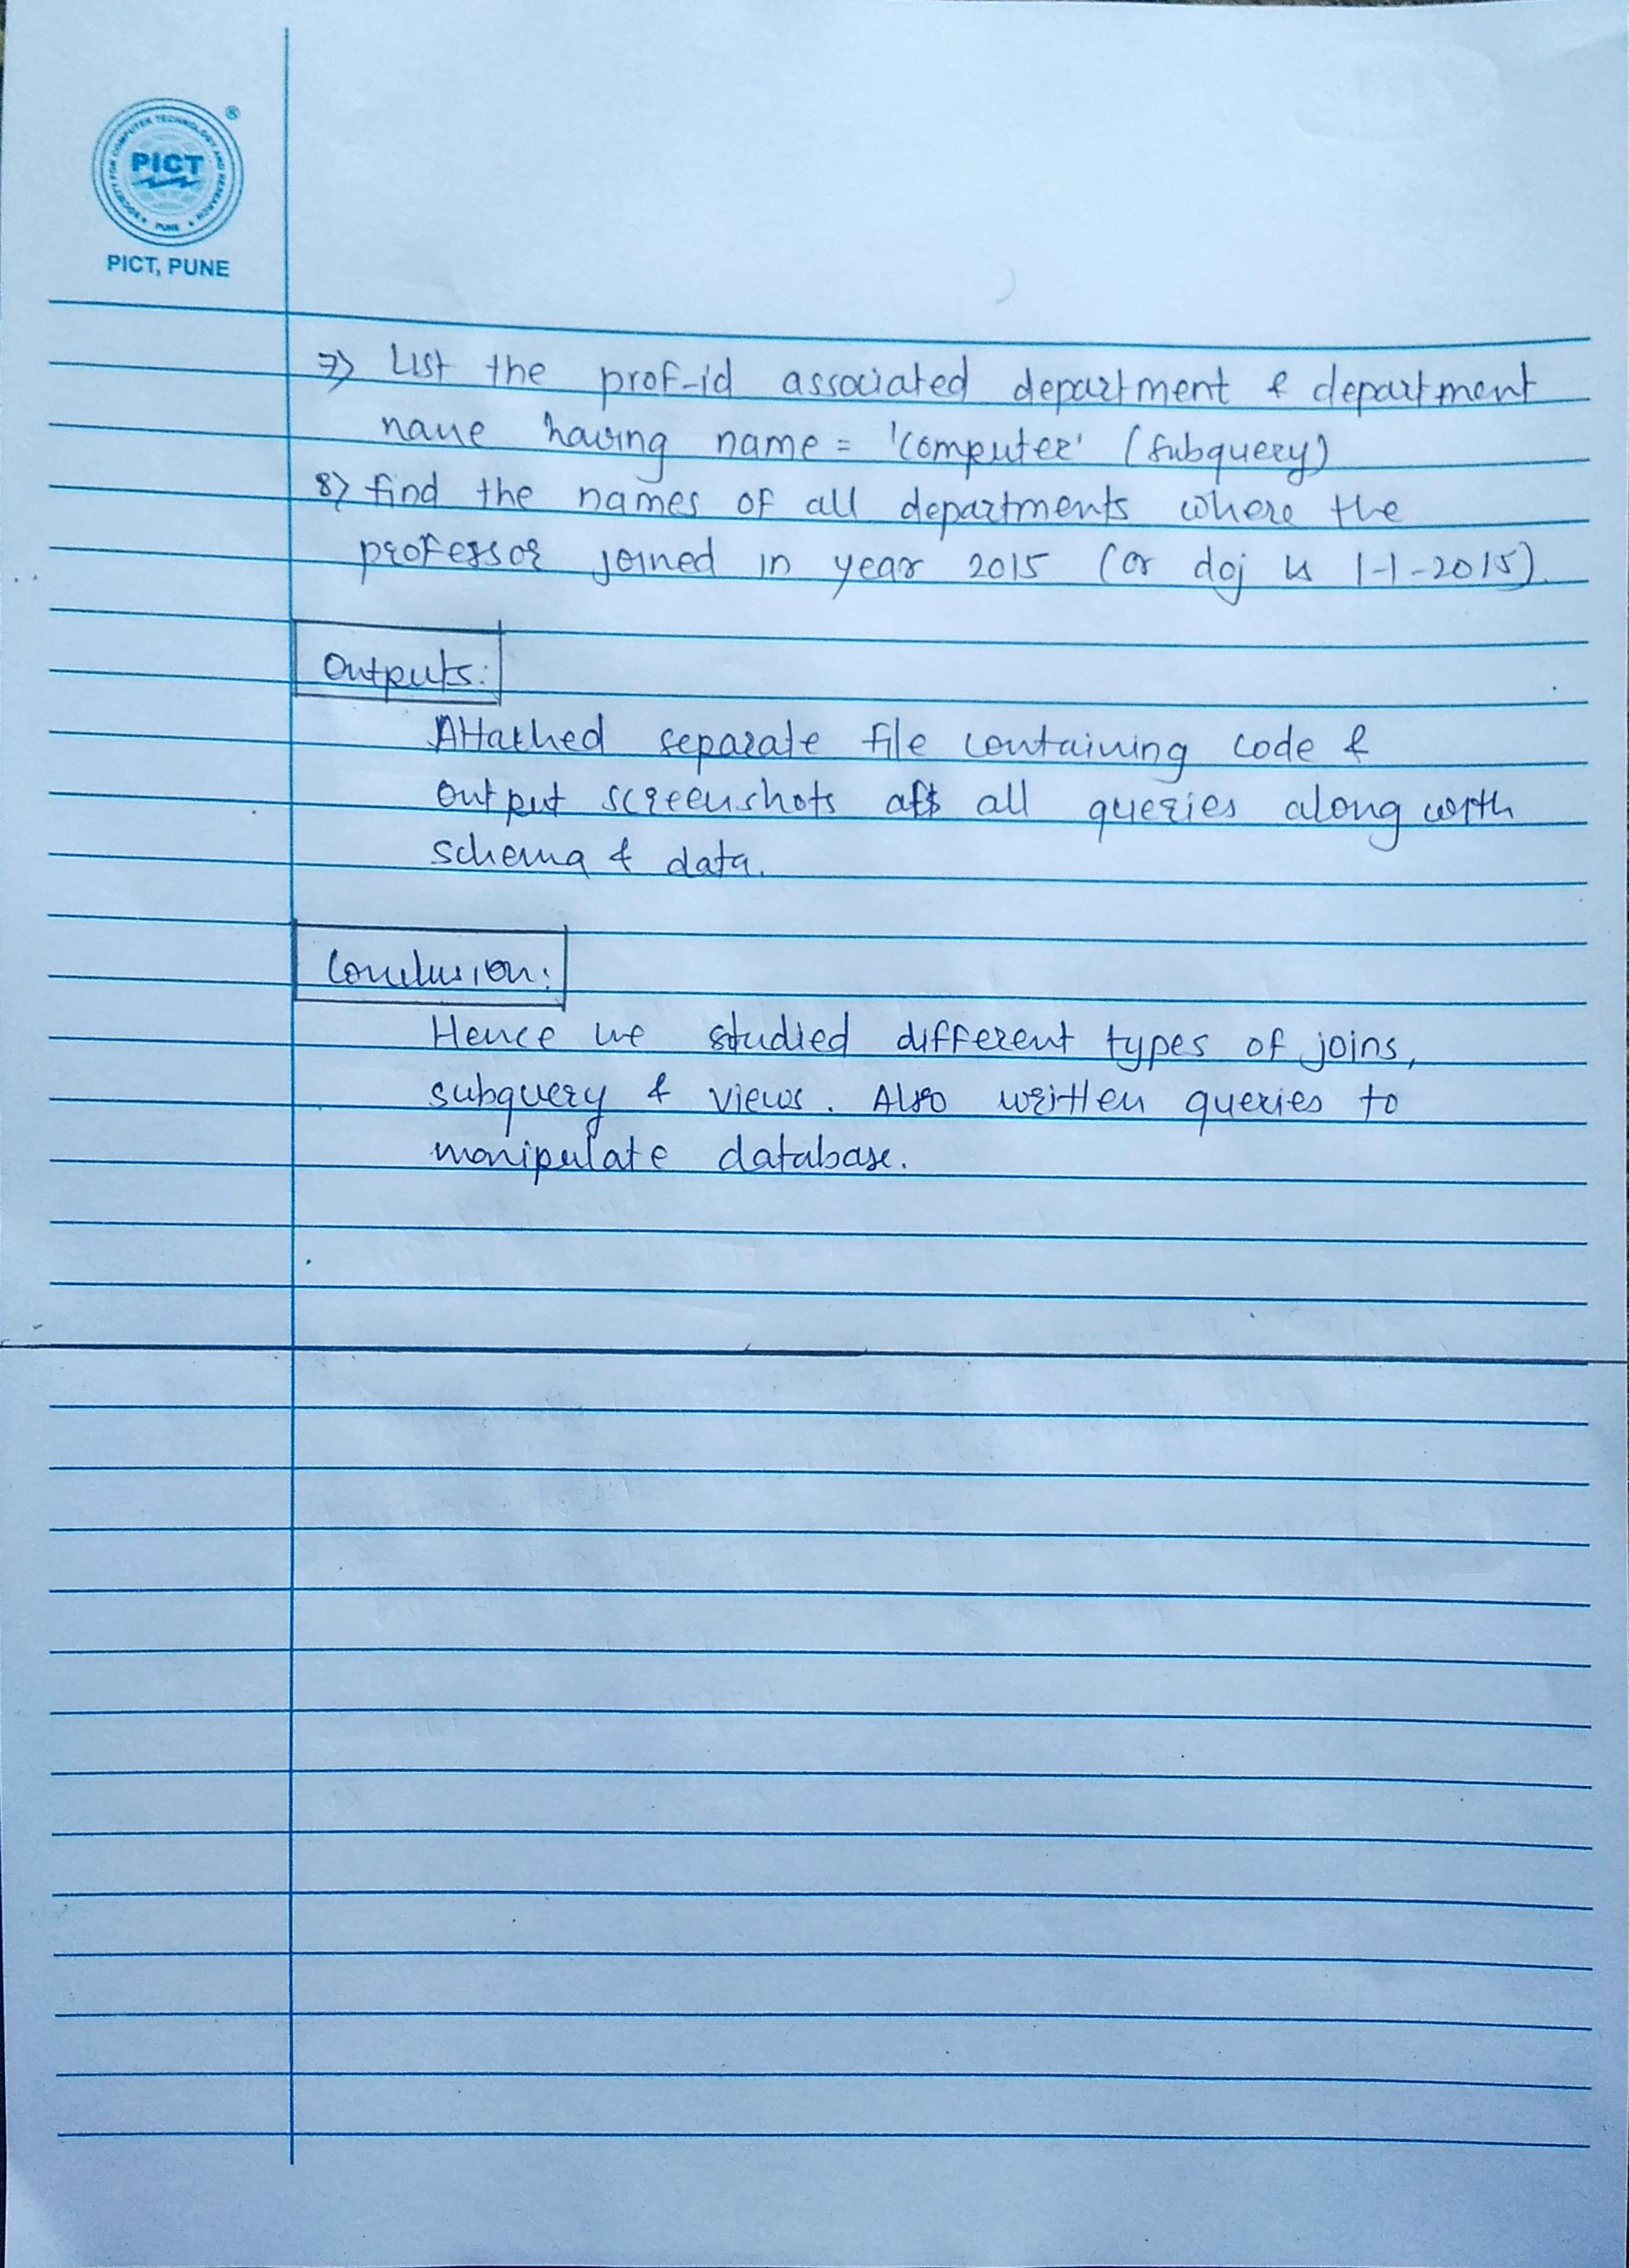 SOCIETY FOR COMPUTER TECHNOLOGY AND RESEARCH
PUNE
PICT
®
PICT, PUNE
7) List the prof-id associated department & department
name having name = 'Computer' (subquery)
8) find the names of all departments where the
professor joined in year 2015 (or doj is 1-1-2015).
Outputs:
Attached separate file containing code &
output screenshots all queries along with
schema & data.
Conclusion:
Hence we studied different types of joins,
subquery & views. Also written queries to
manipulate database.